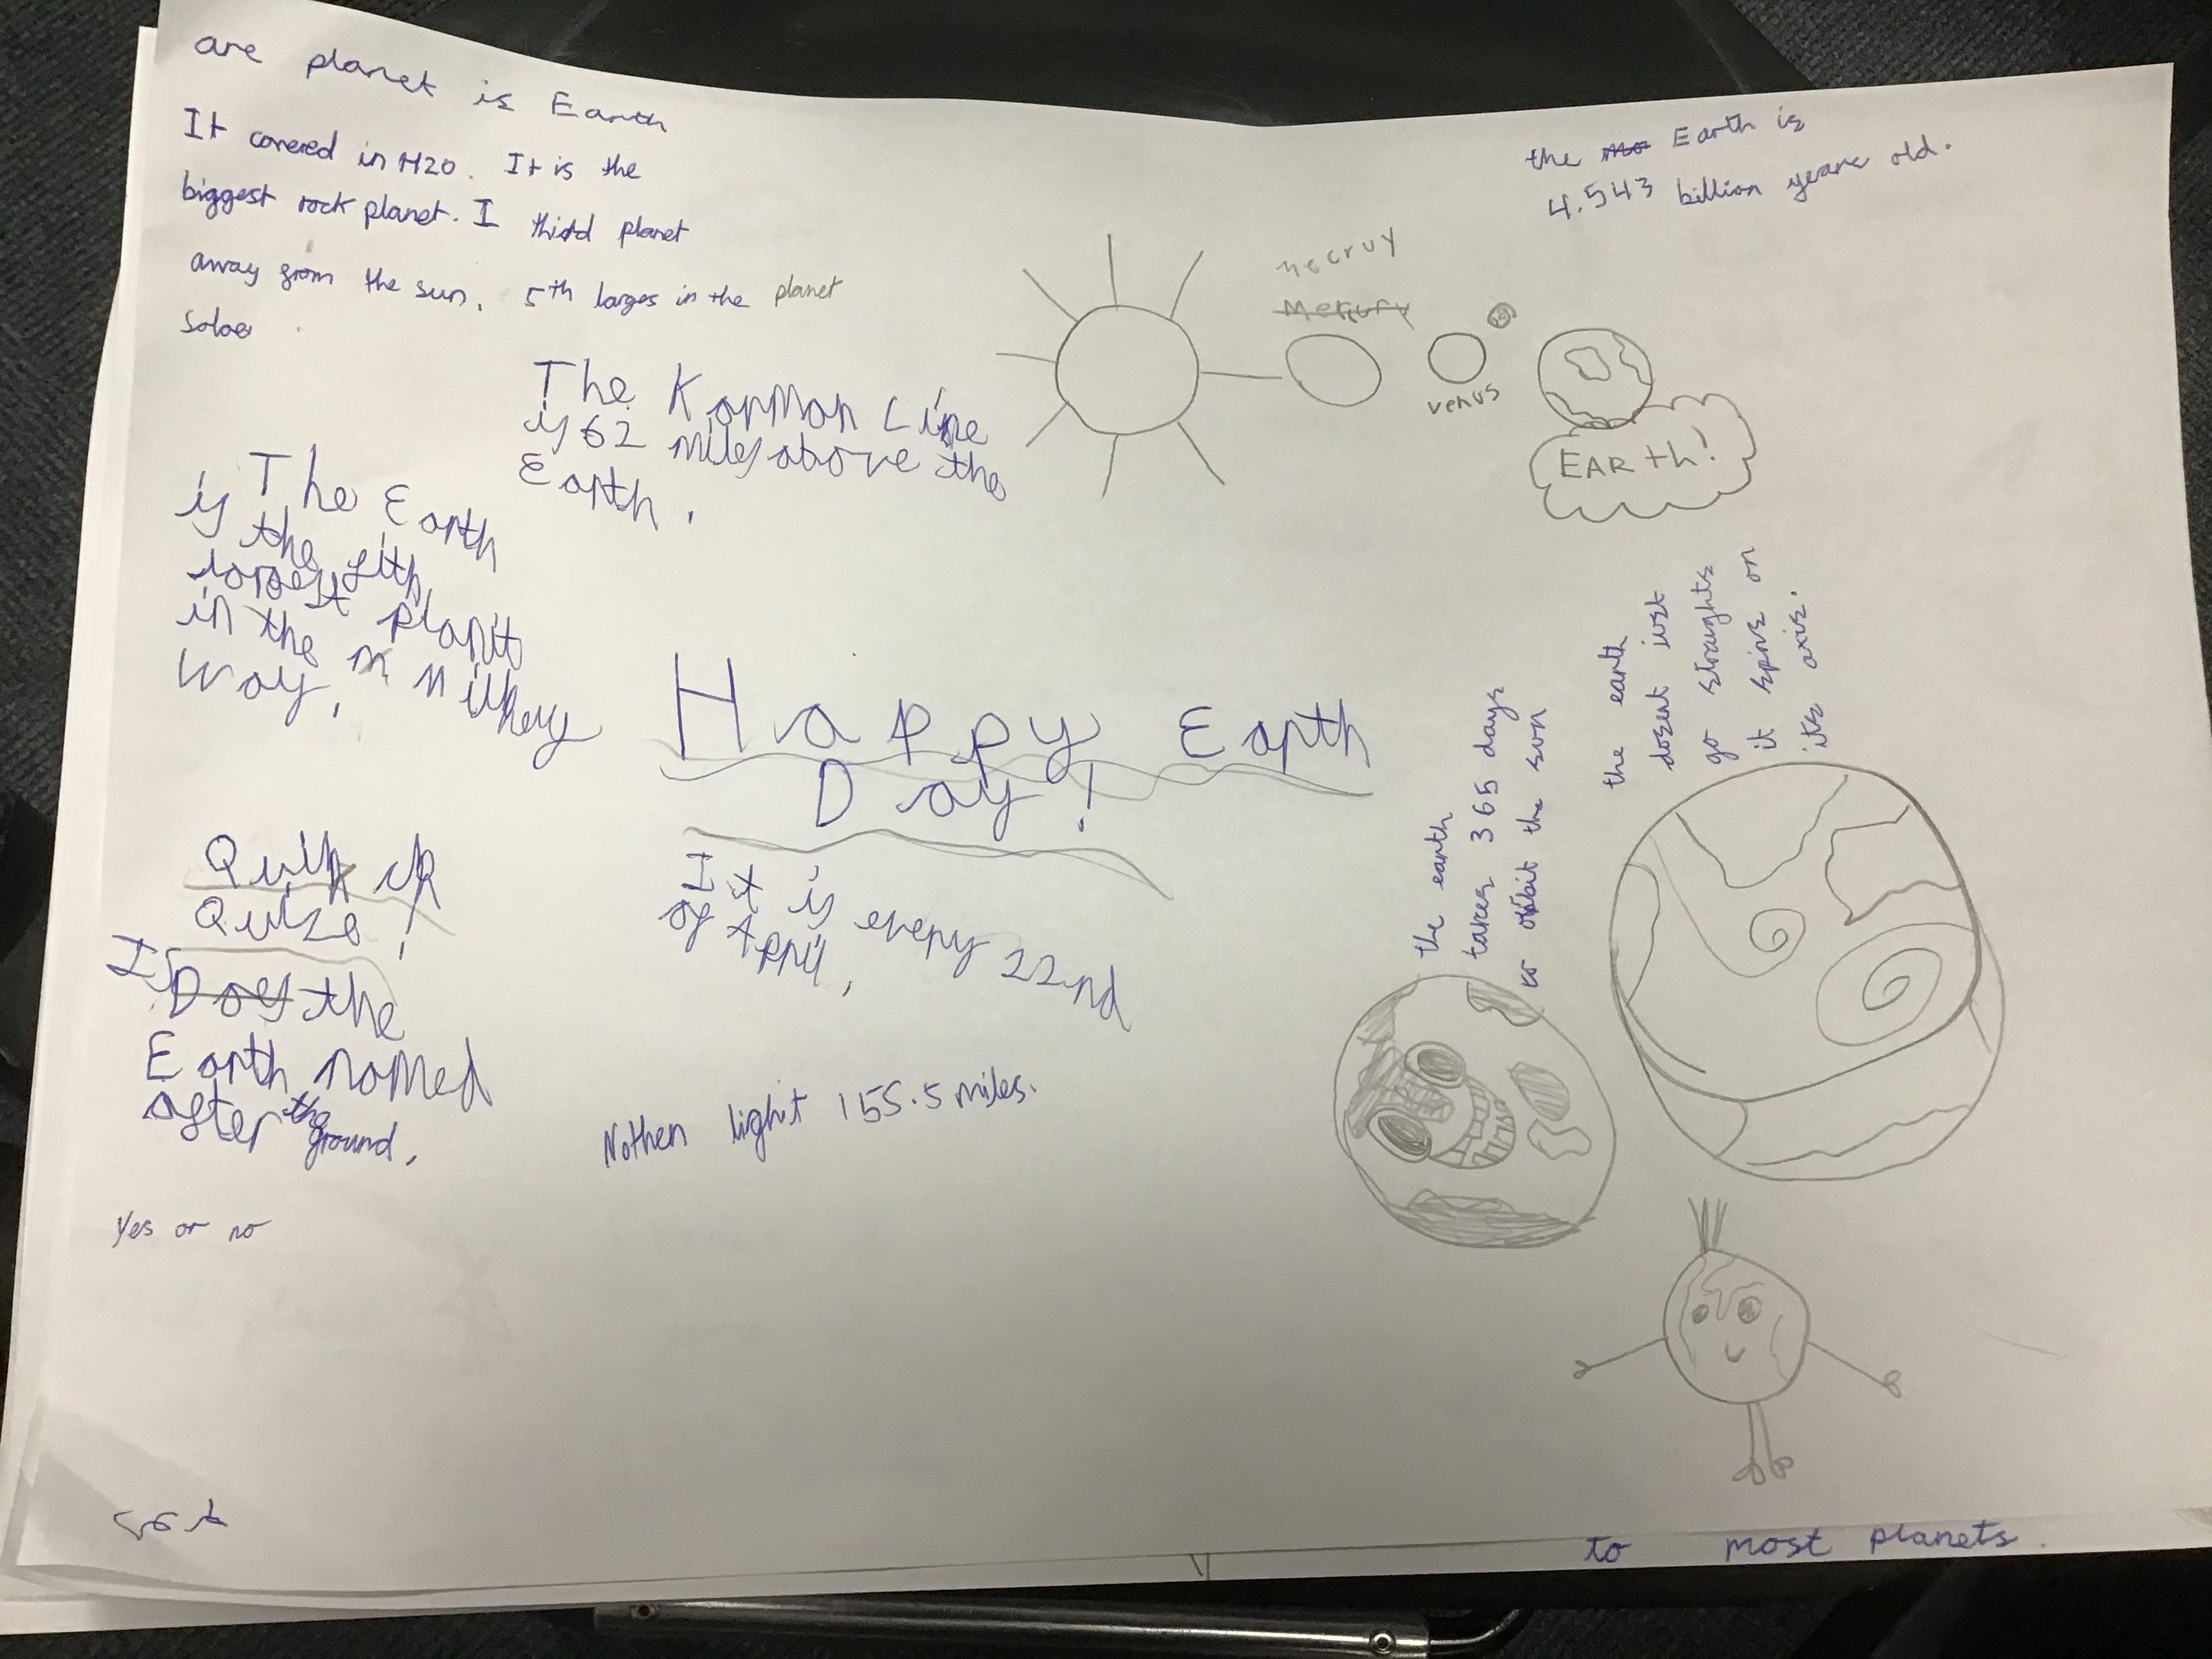 are planet is Earth
It covered in H20. It is the
biggest rock planet. I third planet
away from the sun. 5th larges in the planet
Soloe
the Earth is
4.543 billion years old.
mecruy
Mercury
venus
EARth!
The Karman Line
is 62 miles above the
Earth.
The Earth
is the fith
largest planit
in the Milkey
Way.
Happy Earth
Day!
It is every 22nd
of April.
the earth
takes 365 days
to orbit the sun
the earth
dosent just
go straights
it spins on
its axis.
Quikck
Quize!
Is Does the
Earth named
after the
ground.
Yes or no
Nothen light 155.5 miles.
to most planets.